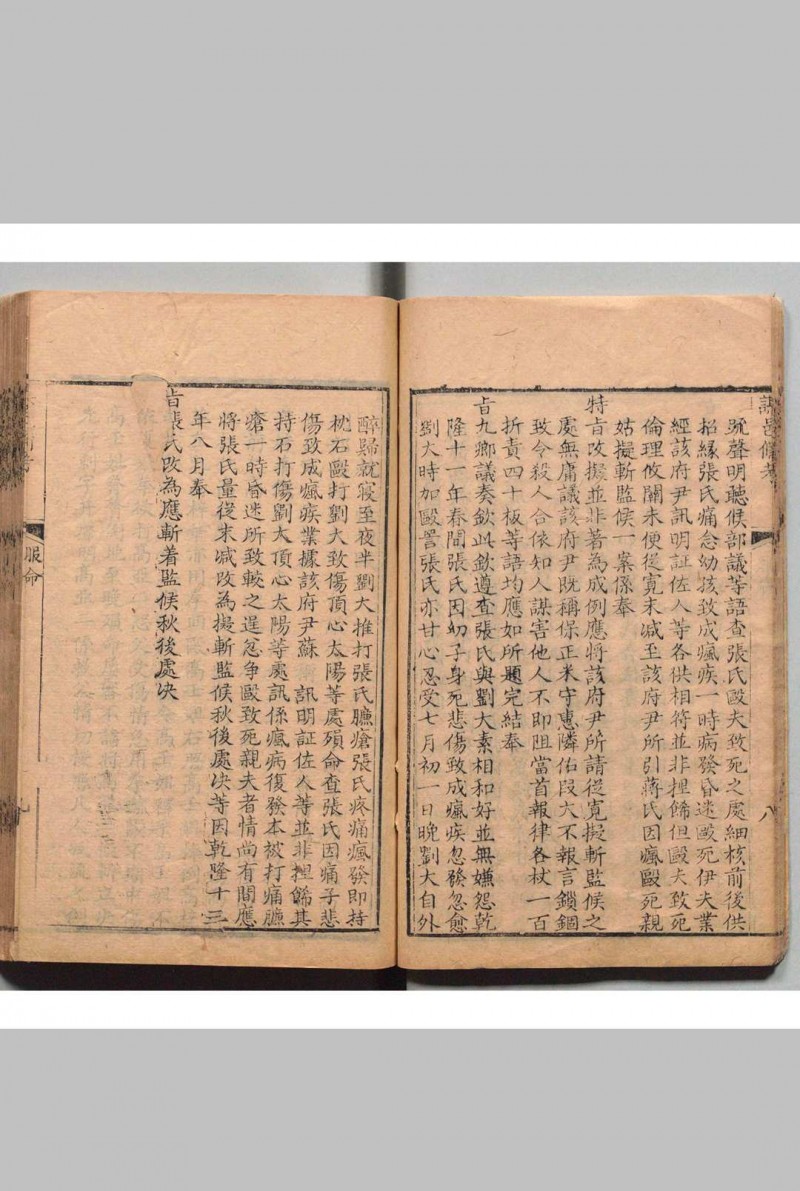 疏聲明聽候部議等語查張氏毆夫致死之處細核前後供
招緣張氏痛念幼孩致成瘋疾一時病發昏迷毆死伊夫業
經該府尹訊明証佐人等各供相符並非捏餙但毆夫致死
倫理攸關未便從寬末减至該府尹所引蔣氏因瘋毆死親
姑擬斬監候一案係奉
特㫖改擬並非著為成例應將該府尹所請從寬擬斬監候之
處無庸議該府尹既稱保正米守惠隣佑段大不報言鎖錮
致令殺人合依知人謀害他人不即阻當首報律各杖一百
折責四十板等語均應如所題完結奉
㫖九卿議奏欽此欽遵查張氏與劉大素相和好並無嫌怨乾
隆十一年春間張氏因幼子身死悲傷致成瘋疾忽發忽愈
劉大時加毆詈張氏亦甘心忍受七月初一日晚劉大自外
八
醉歸就寢至夜半劉大推打張氏臁瘡張氏疼痛瘋發即持
枕石毆打劉大致傷頂心太陽等處殞命查張氏因痛子悲
傷致成瘋疾業據該府尹蘇 訊明証佐人等並非捏餙其
持石打傷劉大頂心太陽等處訊係瘋病復發本被打痛臁
瘡一時昏迷所致較之逞忿争毆致死親夫者情尚有間應
將張氏量從末减改為擬斬監候秋後處决等因乾隆十三
年八月奉
㫖張氏改為應斬着監候秋後處决
服命